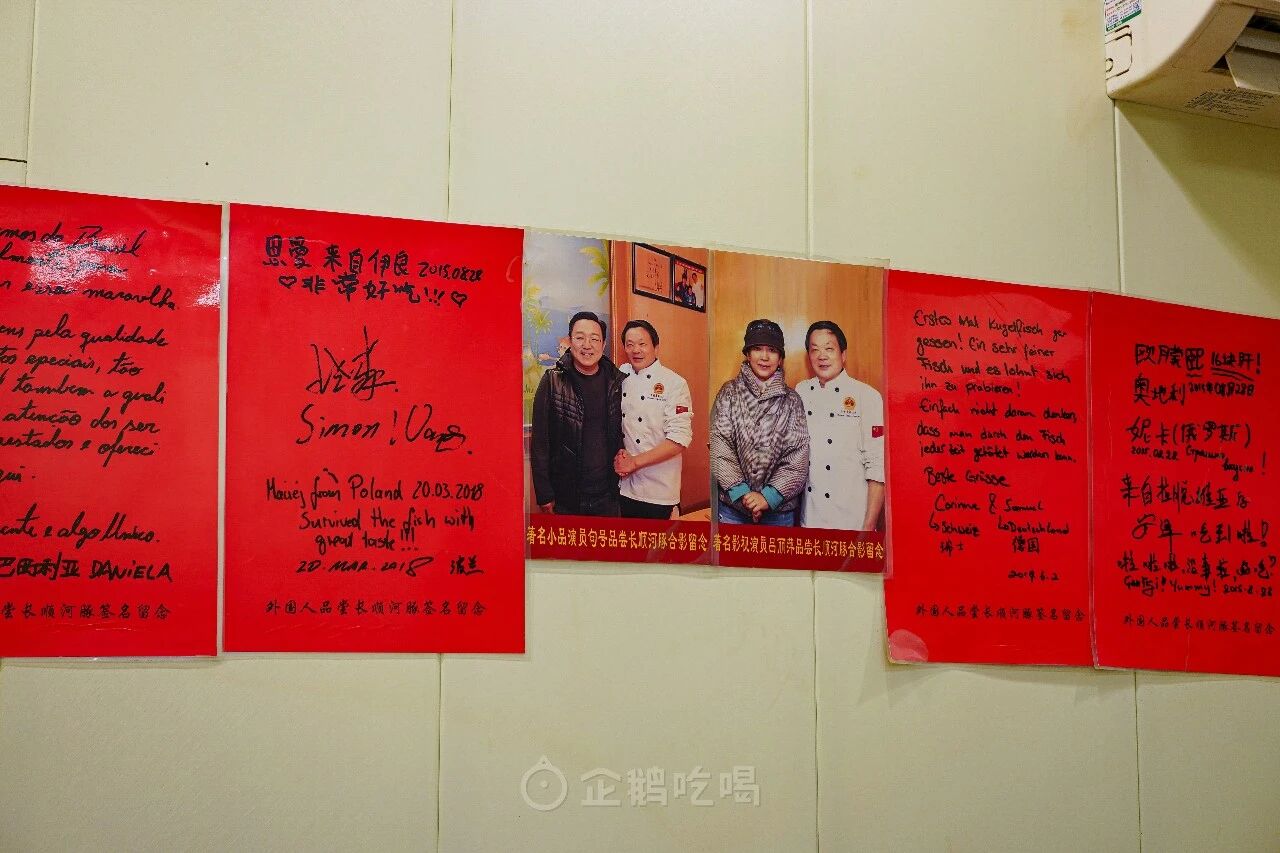 mos do Brasil
essa maravilha.
pela qualidade
especiais, tão
também a quali
atenção dos ser
prestados e ofereci
e algo único.
DANiELA
品尝长顺河豚签名留念
恩爱 来自伊良 2015.0828
♡非常好吃!!!♡
Simon!
Maciej from Poland 20.03.2018
Survived the fish with
great taste!!!
20.MAR.2018 波兰
外国人品尝长顺河豚签名留念
著名小品演员句号品尝长顺河豚合影留念
著名影视演员吕丽萍品尝长顺河豚合影留念
Erstes Mal Kugelfisch ge-
gessen! Ein sehr feiner
Fisch und es lohnt sich
ihn zu probieren!
Einfach nicht daran denken,
dass man durch den Fisch
jederzeit getötet werden kann.
Beste Grüsse
Corinne & Samuel
↳Schweiz ↳Deutschland
瑞士 德国
2019.6.2
外国人品尝长顺河豚签名留念
奥地利 2015年08月28日
妮卡(俄罗斯)
2015.08.28
来自拉脱维亚
吃到啦!
Yummy! 2015.8.28
外国人品尝长顺河豚签名留念
企鹅吃喝